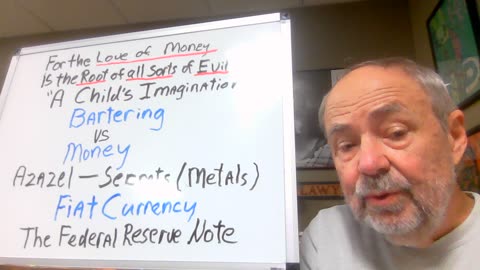 For the Love of Money
Is the Root of all sorts of Evil
"A Child's Imagination
Bartering
vs
Money
Azazel — Secrets (Metals)
Fiat Currency
The Federal Reserve Note
LAW